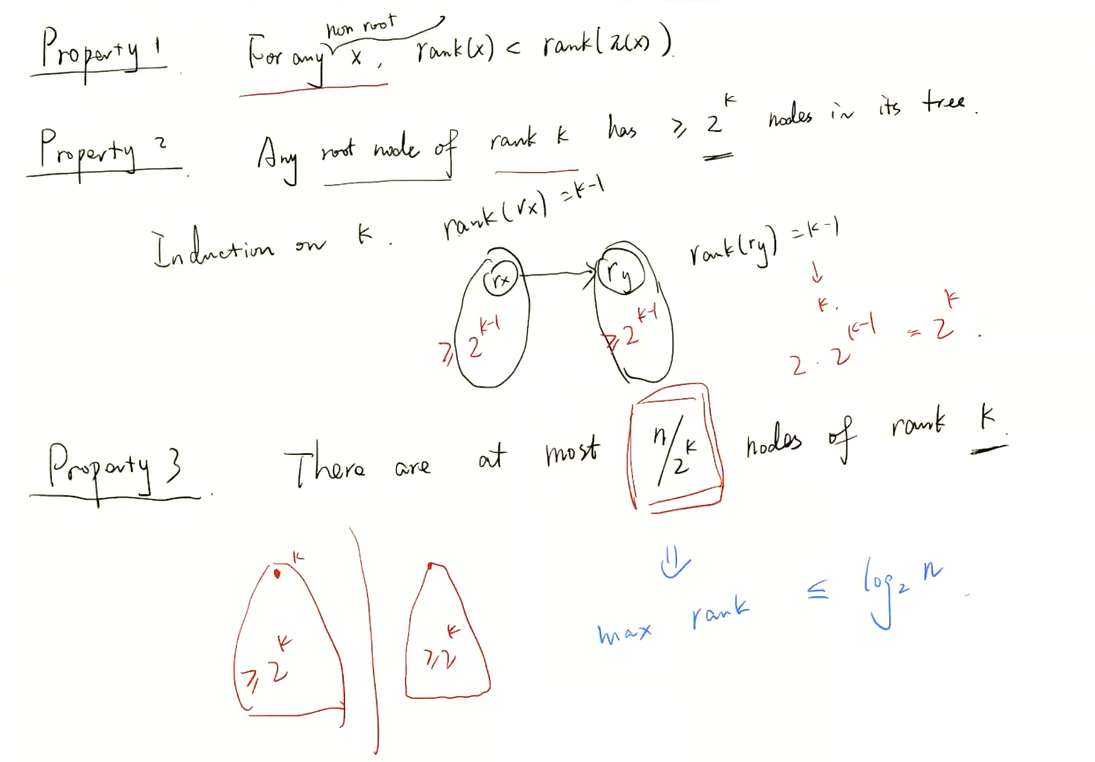 Property 1 For any non root x, rank(x) < rank(π(x)).
Property 2 Any root node of rank k has ≥ 2^k nodes in its tree.
Induction on k. rank(rx) = k-1 rank(ry) = k-1
rx → ry ↓
k.
≥ 2^{k-1} ≥ 2^{k-1} 2 · 2^{k-1} = 2^k.
Property 3 There are at most n/2^k nodes of rank k.
⇓
k
max rank ≤ log₂ n
≥ 2^k ≥ 2^k